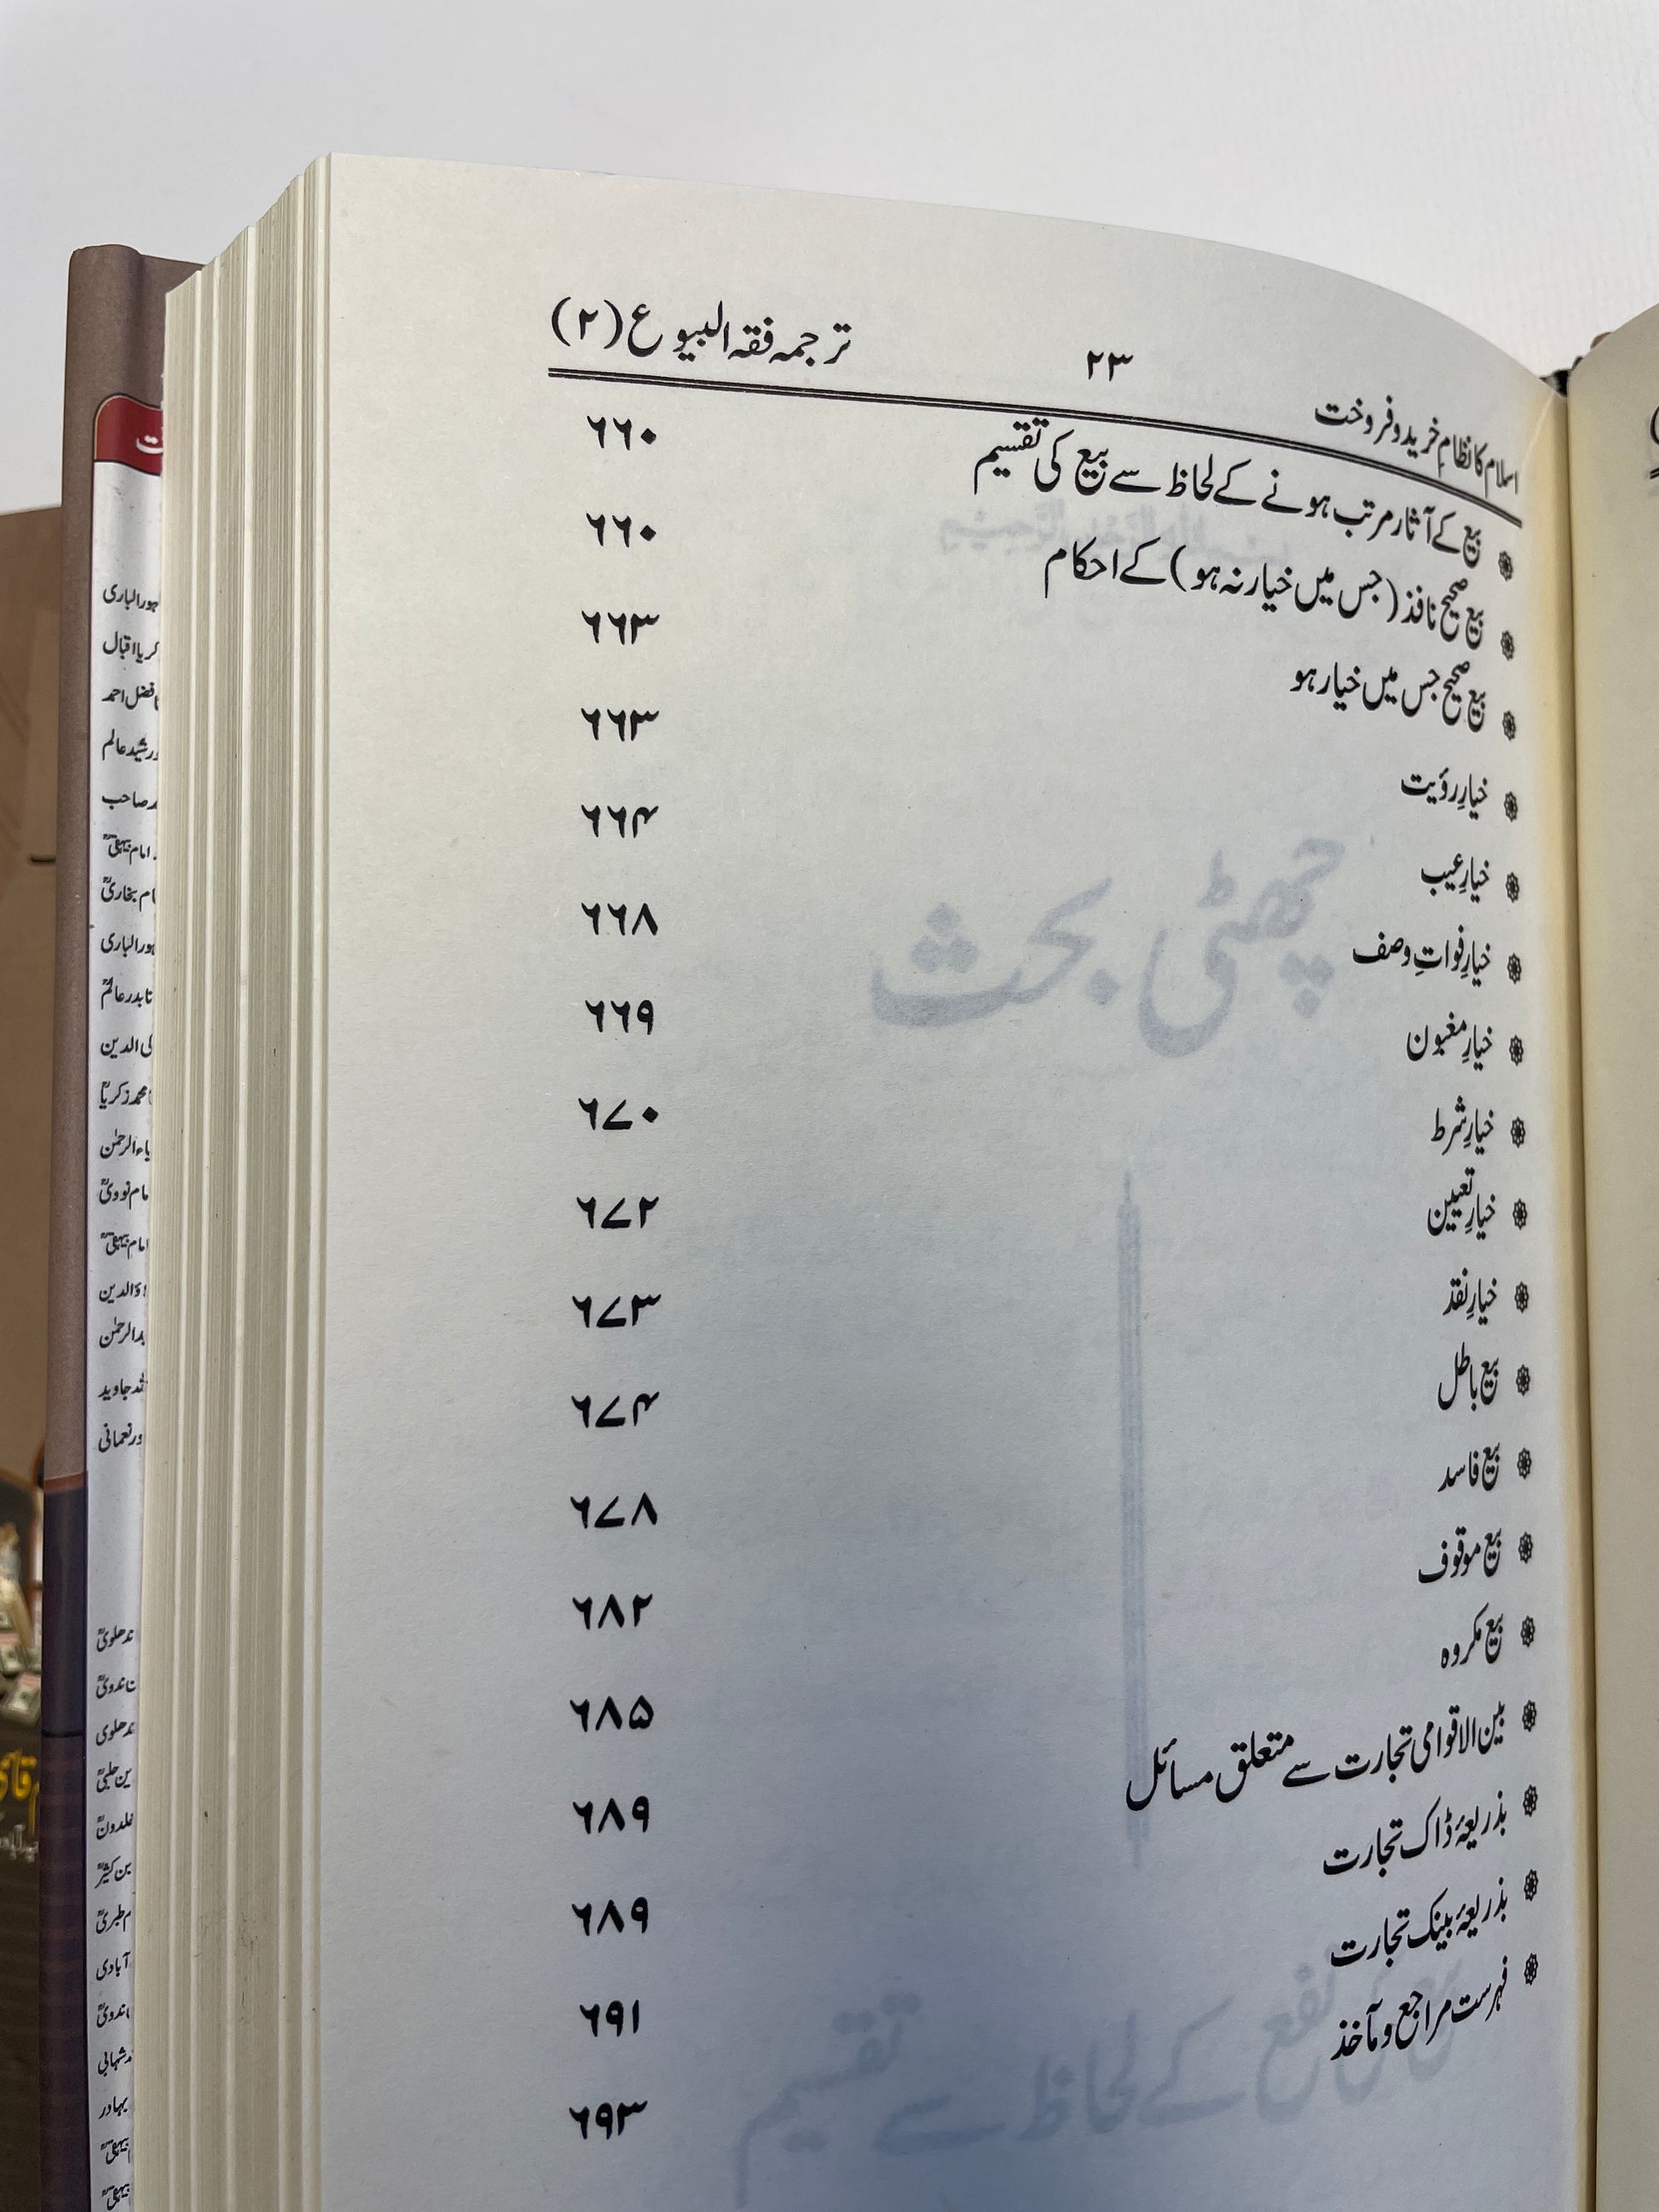 اسلام کا نظامِ خرید و فروخت ۲۳ ترجمہ فقہ البیوع (۲)
بیع کے آثار مرتب ہونے کے لحاظ سے بیع کی تقسیم ۶۶۰
بیع صحیح نافذ (جس میں خیار نہ ہو) کے احکام ۶۶۰
بیع صحیح جس میں خیار ہو ۶۶۳
خیارِ رؤیت ۶۶۳
خیارِ عیب ۶۶۴
خیارِ فواتِ وصف ۶۶۸
خیارِ مغبون ۶۶۹
خیارِ شرط ۶۷۰
خیارِ تعیین ۶۷۲
خیارِ نقد ۶۷۳
بیع باطل ۶۷۴
بیع فاسد ۶۷۸
بیع موقوف ۶۸۲
بیع مکروہ ۶۸۵
بین الاقوامی تجارت سے متعلق مسائل ۶۸۹
بذریعۂ ڈاک تجارت ۶۸۹
بذریعۂ بینک تجارت ۶۹۱
فہرست مراجع و مآخذ ۶۹۳